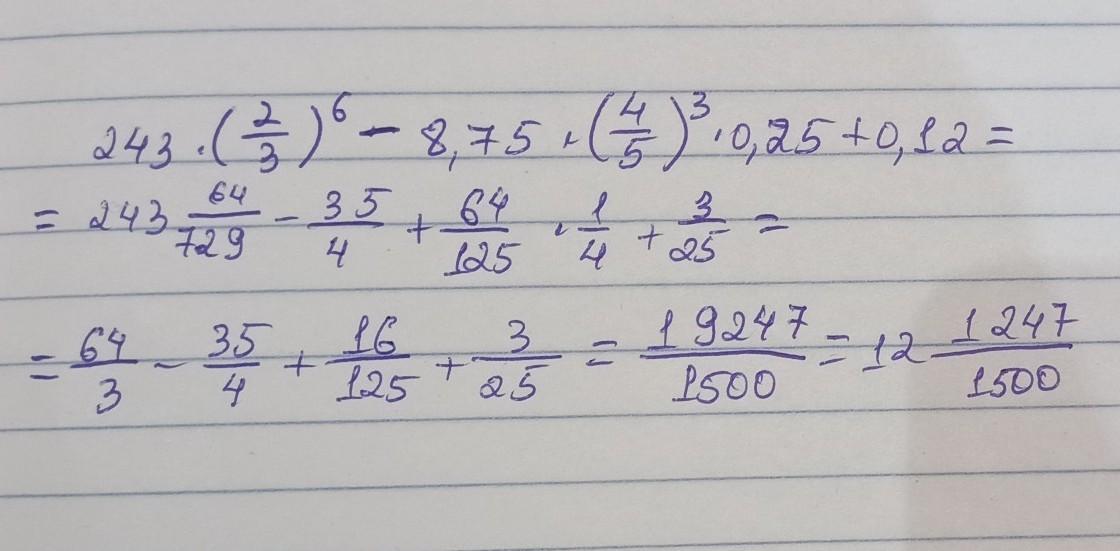 243 · (2/3)^6 - 8,75 · (4/5)^3 · 0,25 + 0,12 =
= 243 64/729 - 35/4 + 64/125 · 1/4 + 3/25 =
= 64/3 - 35/4 + 16/125 + 3/25 = 19247/1500 = 12 1247/1500